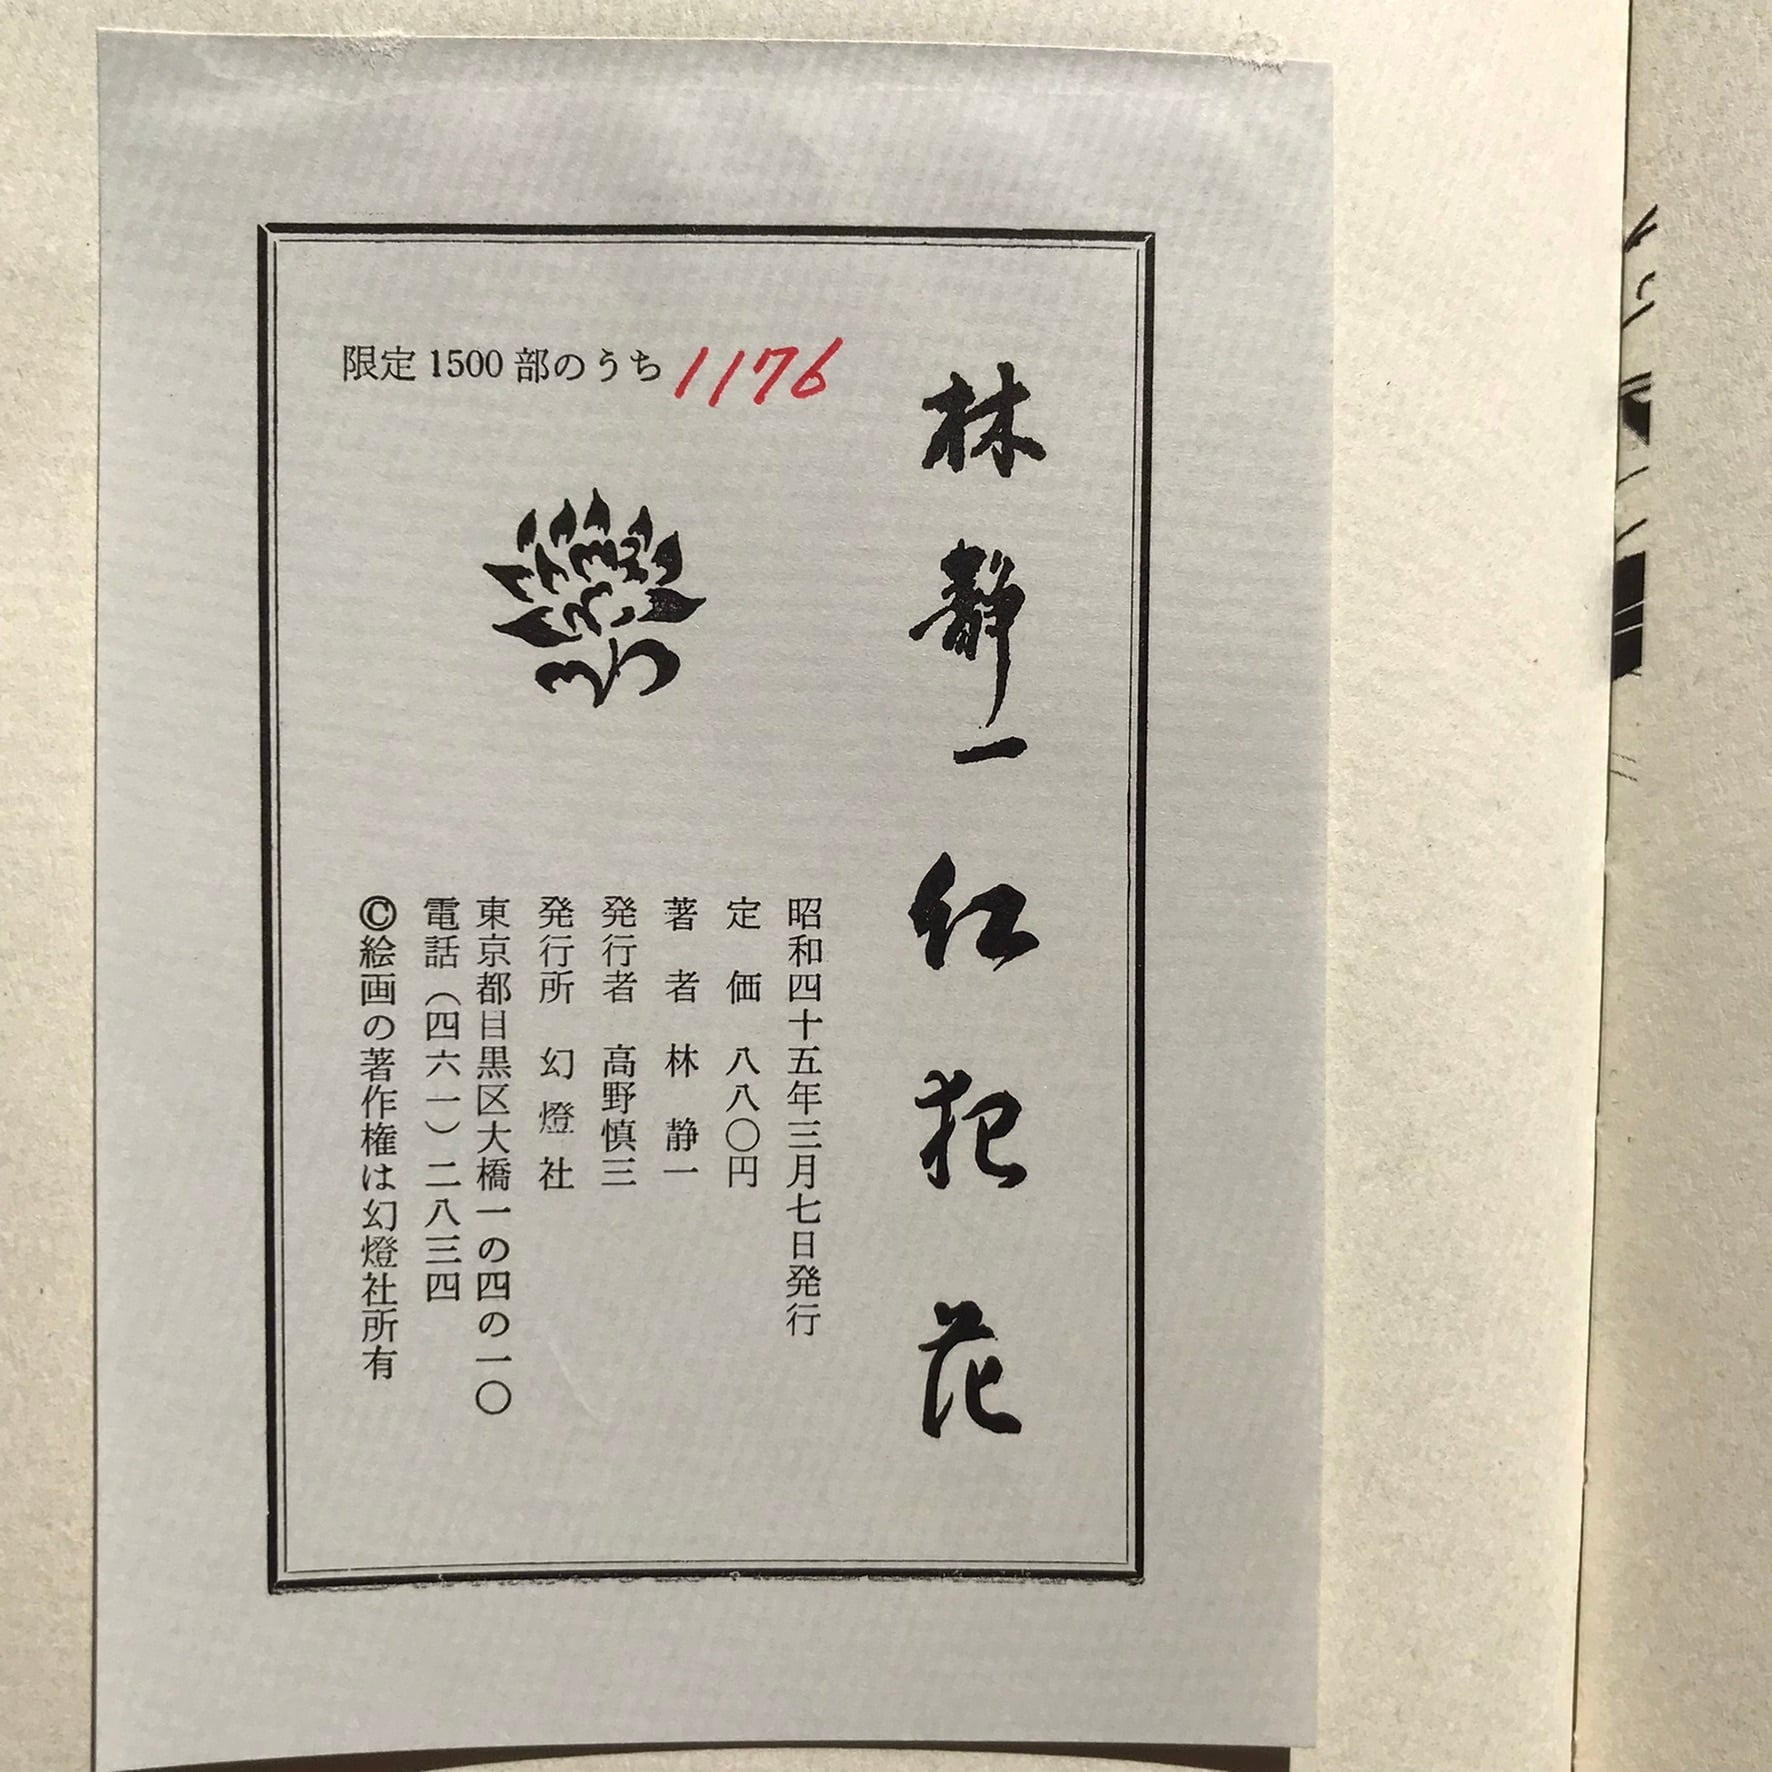 林静一
紅犯花
限定1500部のうち 1176
昭和四十五年三月七日発行
定価 八八〇円
著者 林静一
発行者 高野慎三
発行所 幻燈社
東京都目黒区大橋一の四の一〇
電話(四六一)二八三四
©絵画の著作権は幻燈社所有